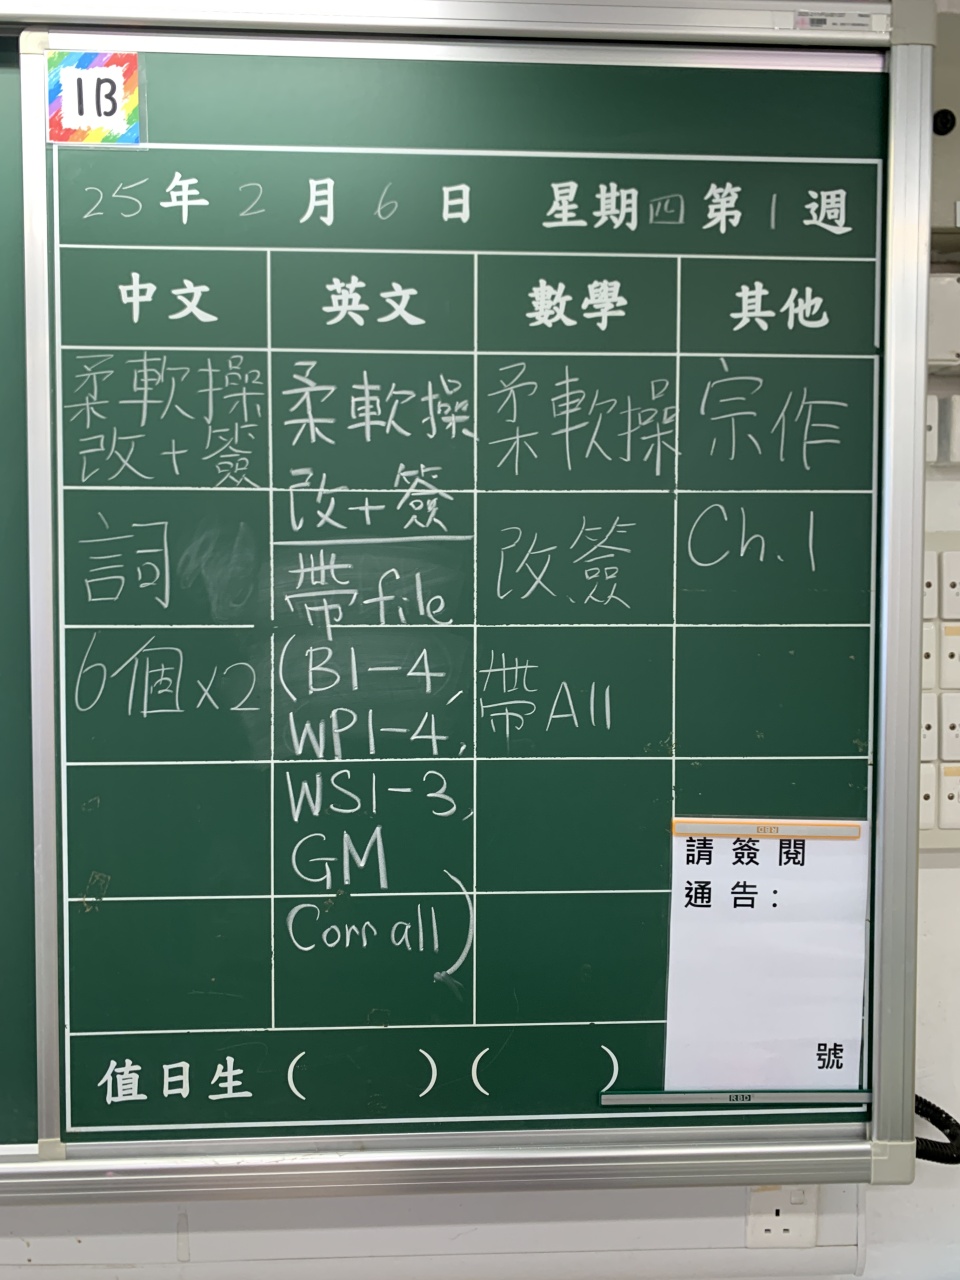 1B
25年2月6日 星期四第1週
中文 英文 數學 其他
柔軟操
改+簽
詞
6個x2
柔軟操
改+簽
帶file
(B1-4,
WP1-4,
WS1-3,
GM
Corr all)
柔軟操
改、簽
帶All
宗作
Ch.1
請簽閱
通告:
號
值日生( )( )